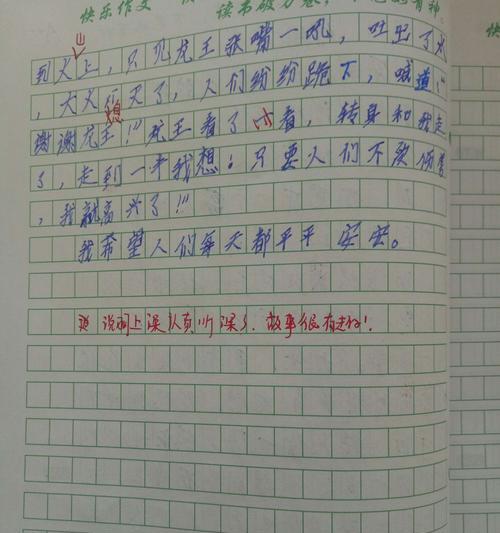 快乐作文
读书破万卷,
山
到火上,只见龙王张嘴一吼,吐出了水
,大火熄灭了,人们纷纷跪下,喊道:"
谢谢龙王!"龙王看了看,转身和我走
了,走到一半我想:只要人们不受伤害
,我就高兴了!"
我希望人们每天都平平安安。
说明上课认真听课了.故事很有趣!